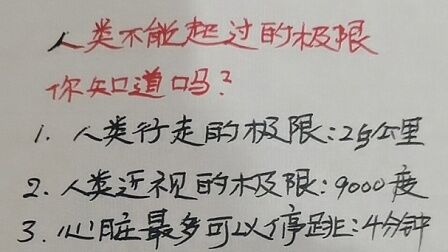 人类不能超过的极限
你知道吗?
1. 人类行走的极限:25公里
2. 人类近视的极限:9000度
3. 心脏最多可以停跳:4分钟